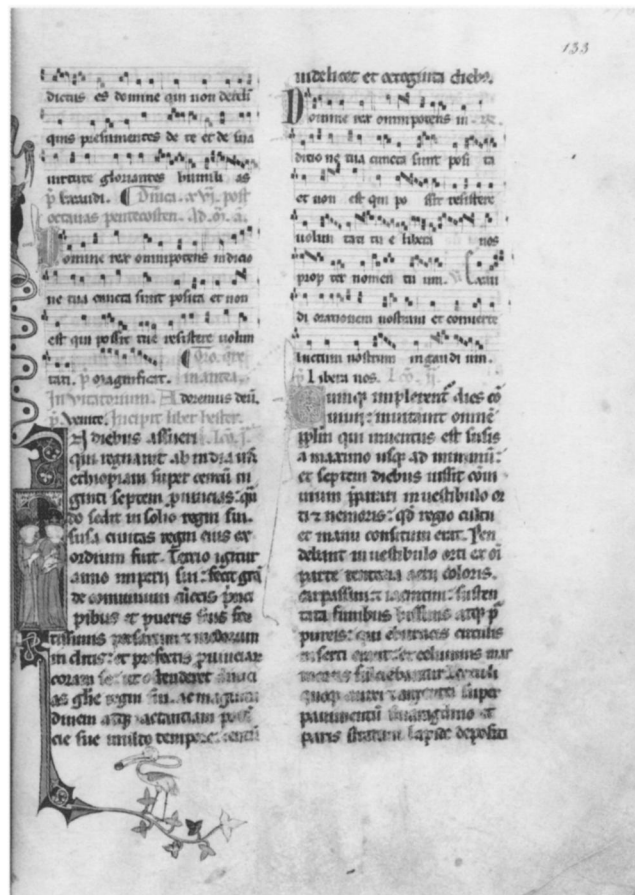 133
dictus es domine qui non dereli
quis presumentes de te et de sua
virtute gloriantes humili as
p̄ Exaudi. Dnica. xvij. post
octavas pentecosten. ad
omine rex omnipotens in dicio
ne tua cuncta sunt posita et non
est qui possit tue resistere volun
tati. p̄ Magnificat.
Invitatorium. Adoremus deū.
p̄. Venite. Incipit liber hester.
N diebus assueri
qui regnavit ab india
ethiopiam super centū vi
ginti septem
do sedit in solio regni sui.
susa civitas regni eius ex
ordium fuit. Tertio igitur
anno imperii sui: fecit
de convivium
pibus et pueris suis for
tissimis persarum
inclitis: et prefectis
coram se: ut ostenderet
as glīe regni sui. ac magnitu
dinem atqꝫ iactantiam
cie sue multo tempore: centū
videlicet et octoginta diebꝰ.
Domine rex omnipotens in
ditione tua cuncta sunt posi ta
et non est qui po ssit resistere
volun tati tu e libera nos
prop ter nomen tu um. Exau
di orationem nostram et converte
luctum nostrum in gaudi um.
Libera nos.
umqꝫ implerent dies cō
vivii: invitavit omnē
pplm qui inventus est susis
a maximo usqꝫ ad minimū:
et septem diebus iussit convi
vium parari in vestibulo or
ti nemoris: qd regio cultu
et manu consitum erat. Pen
debant in vestibulo orti ex oī
parte tentoria aerii coloris.
carpassini iacintini: susten
tata funibus bissinis atqꝫ
pureis: qui eburneis circulis
inserti erant: et columnis mar
moreis fulciebantur. Lectuli
quoqꝫ aurei argentei super
pavimentū smaragdino et
pario stratum lapide depositi